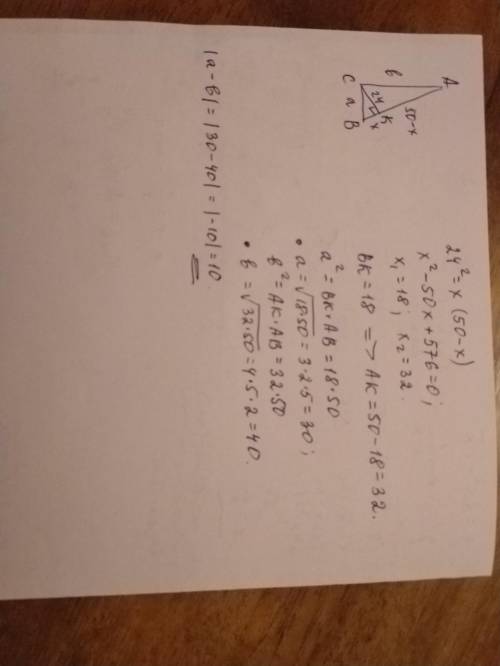 A
в
50-x
C
24
K
a
x
B
24² = x (50-x)
x² - 50x + 576 = 0;
x₁ = 18; x₂ = 32.
BK = 18 => AK = 50 - 18 = 32.
a² = BK·AB = 18·50
• a = √18·50 = 3·2·5 = 30;
в² = AK·AB = 32·50
• в = √32·50 = 4·5·2 = 40.
|a-в| = |30-40| = |-10| = 10.